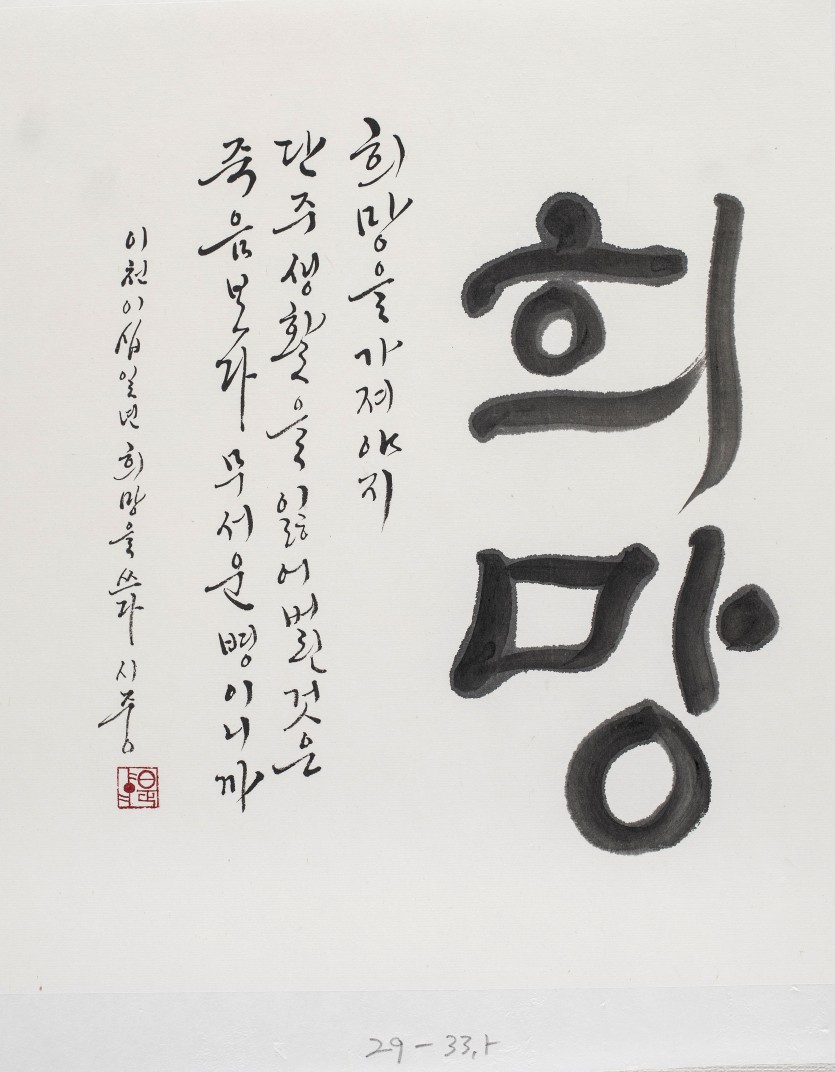 희망
희망을 가져야지
단주생활을 잃어버린 것은
죽음보다 무서운 병이니까
이천이십일년 희망을 쓰다 시중
29-33,